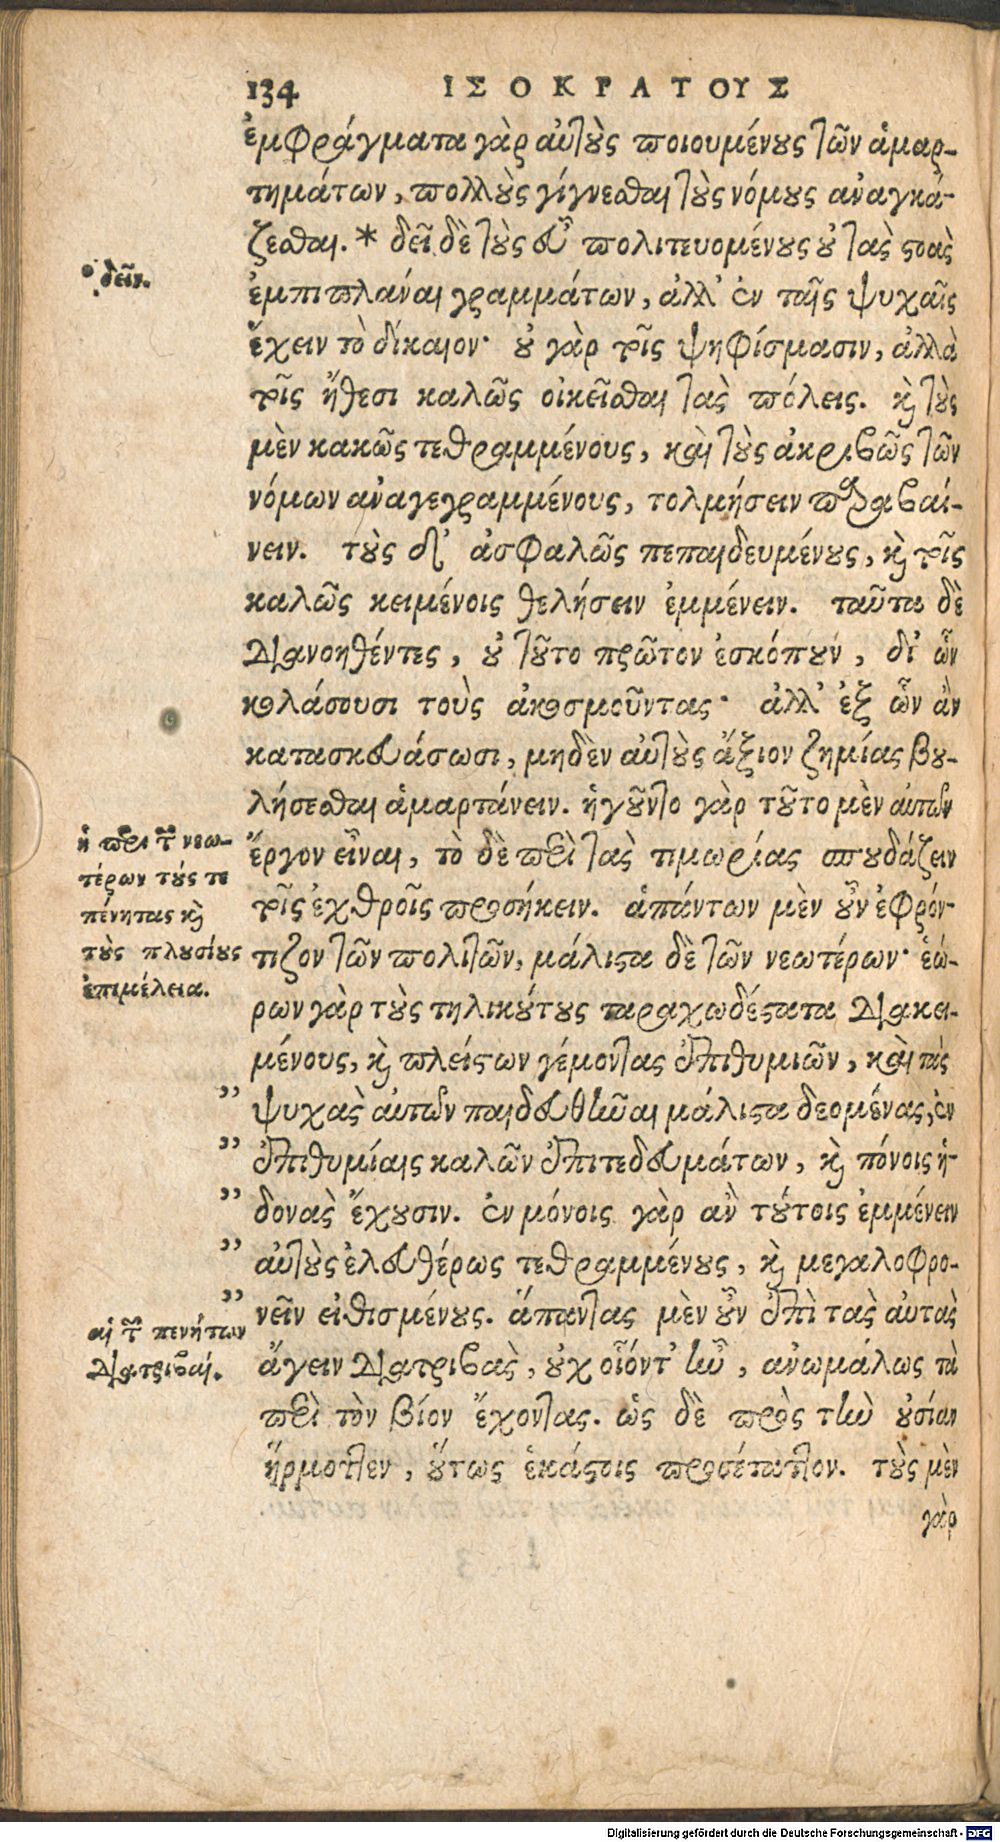 134 ΙΣΟΚΡΑΤΟΥΣ
ἐμφράγματα γὰρ αὐτοὺς ποιουμένους τῶν ἁμαρ-
τημάτων, πολλοὺς γίγνεσθαι τοὺς νόμους ἀναγκά-
ζεσθαι. * δεῖ δὲ τοὺς εὖ πολιτευομένους οὐ τὰς στοὰς
• δεῖν.
ἐμπιπλάναι γραμμάτων, ἀλλ' ἐν ταῖς ψυχαῖς
ἔχειν τὸ δίκαιον· οὐ γὰρ τοῖς ψηφίσμασιν, ἀλλὰ
τοῖς ἤθεσι καλῶς οἰκεῖσθαι τὰς πόλεις. καὶ τοὺς
μὲν κακῶς τεθραμμένους, καὶ τοὺς ἀκριβῶς τῶν
νόμων ἀναγεγραμμένους, τολμήσειν παραβαί-
νειν. τοὺς δ' ἀσφαλῶς πεπαιδευμένους, καὶ τοῖς
καλῶς κειμένοις θελήσειν ἐμμένειν. ταῦτα δὲ
διανοηθέντες, οὐ τοῦτο πρῶτον ἐσκόπουν, δι' ὧν
κολάσουσι τοὺς ἀκοσμοῦντας· ἀλλ' ἐξ ὧν ἂν
κατασκευάσωσι, μηδὲν αὐτοὺς ἄξιον ζημίας βου-
λήσεσθαι ἁμαρτάνειν. ἡγοῦντο γὰρ τοῦτο μὲν αὐτῶν
ἔργον εἶναι, τὸ δὲ περὶ τὰς τιμωρίας σπουδάζειν
τοῖς ἐχθροῖς προσήκειν. ἁπάντων μὲν οὖν ἐφρόν-
τιζον τῶν πολιτῶν, μάλιστα δὲ τῶν νεωτέρων· ἑώ-
ἡ περὶ τῶν νεω-
τέρων τούς τε
πένητας καὶ
τοὺς πλουσίους
ἐπιμέλεια.
ρων γὰρ τοὺς τηλικούτους ταραχωδέστατα διακει-
μένους, καὶ πλείστων γέμοντας ἐπιθυμιῶν, καὶ τὰς
" ψυχὰς αὐτῶν παιδευθῆναι μάλιστα δεομένας, ἐν
" ἐπιθυμίαις καλῶν ἐπιτεδευμάτων, καὶ πόνοις ἡ-
" δονὰς ἔχουσιν. ἐν μόνοις γὰρ ἂν τούτοις ἐμμένειν
" αὐτοὺς ἐλευθέρως τεθραμμένους, καὶ μεγαλοφρο-
" νεῖν εἰθισμένους. ἅπαντας μὲν οὖν ἐπὶ τὰς αὐτὰς
αἱ τῶν πενήτων
διατριβαί.
ἄγειν διατριβὰς, οὐχ οἷόντ' ἦν, ἀνωμάλως τὰ
περὶ τὸν βίον ἔχοντας. ὡς δὲ πρὸς τὴν οὐσίαν
ἥρμοττεν, οὕτως ἑκάστοις προσέταττον. τοὺς μὲν
γὰρ
Digitalisierung gefördert durch die Deutsche Forschungsgemeinschaft - DFG